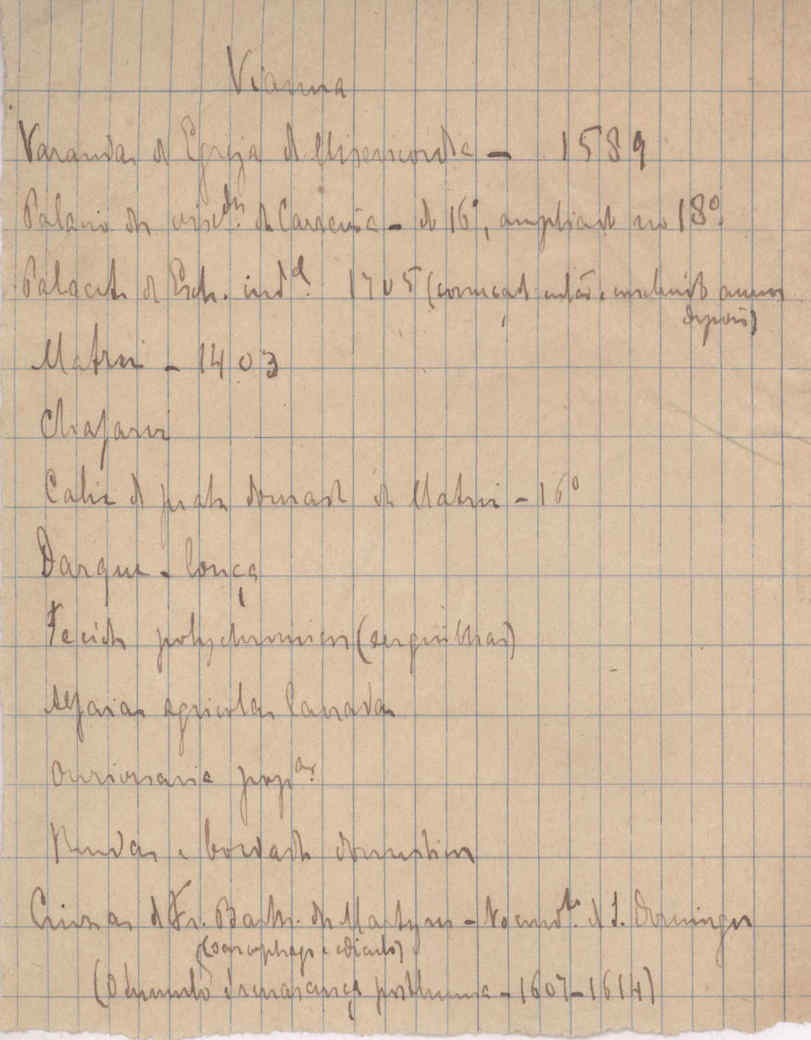 Vianna
Varandas da Egreja da Misericordia - 1589
Palacio dos visc.des da Carreira - do 16º, ampliado no 18º
Palacete da Esch. ind.al 1705 (começado então, concluido annos
depois)
Matriz - 1403
Chafariz
Calix de prata dourada da Matriz - 16º
Darque - louça
Tecidos polychromicos (serguilhas)
Alfaias agricolas lavradas
Ourivesaria pop.ar
Rendas e bordados domesticos
Cinzas de Fr. Barth. dos Martyres - No conv.to de S. Domingos
(sarcophago e ediculo)
(O tumulo é renascença posthuma - 1607-1614)